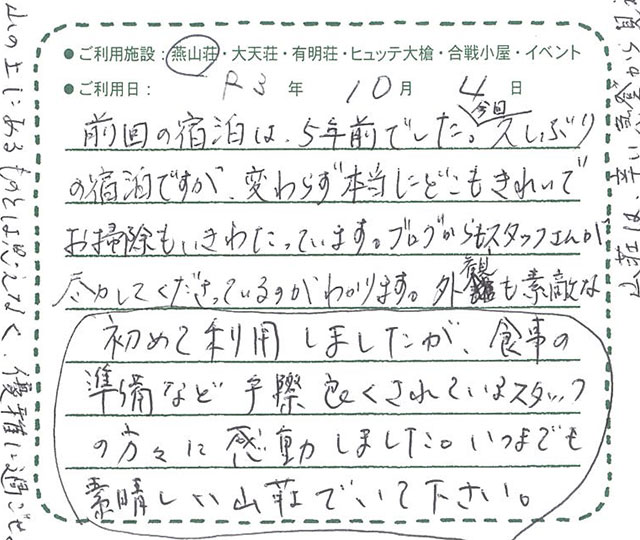 ●ご利用施設：燕山荘・大天荘・有明荘・ヒュッテ大槍・合戦小屋・イベント
●ご利用日： R3 年 10 月 4 日
前回の宿泊は、5年前でした。今回久しぶり
の宿泊ですが、変わらず本当にどこもきれいで
お掃除もいきわたっています。ブログからもスタッフさんが
尽力してくださっているのがわかります。外観も素敵な
初めて利用しましたが、食事の
準備など手際良くされているスタッフ
の方々に感動しました。いつまでも
素晴しい山荘でいて下さい。
山の上にあるものとは思えなく、優雅に過ごせ